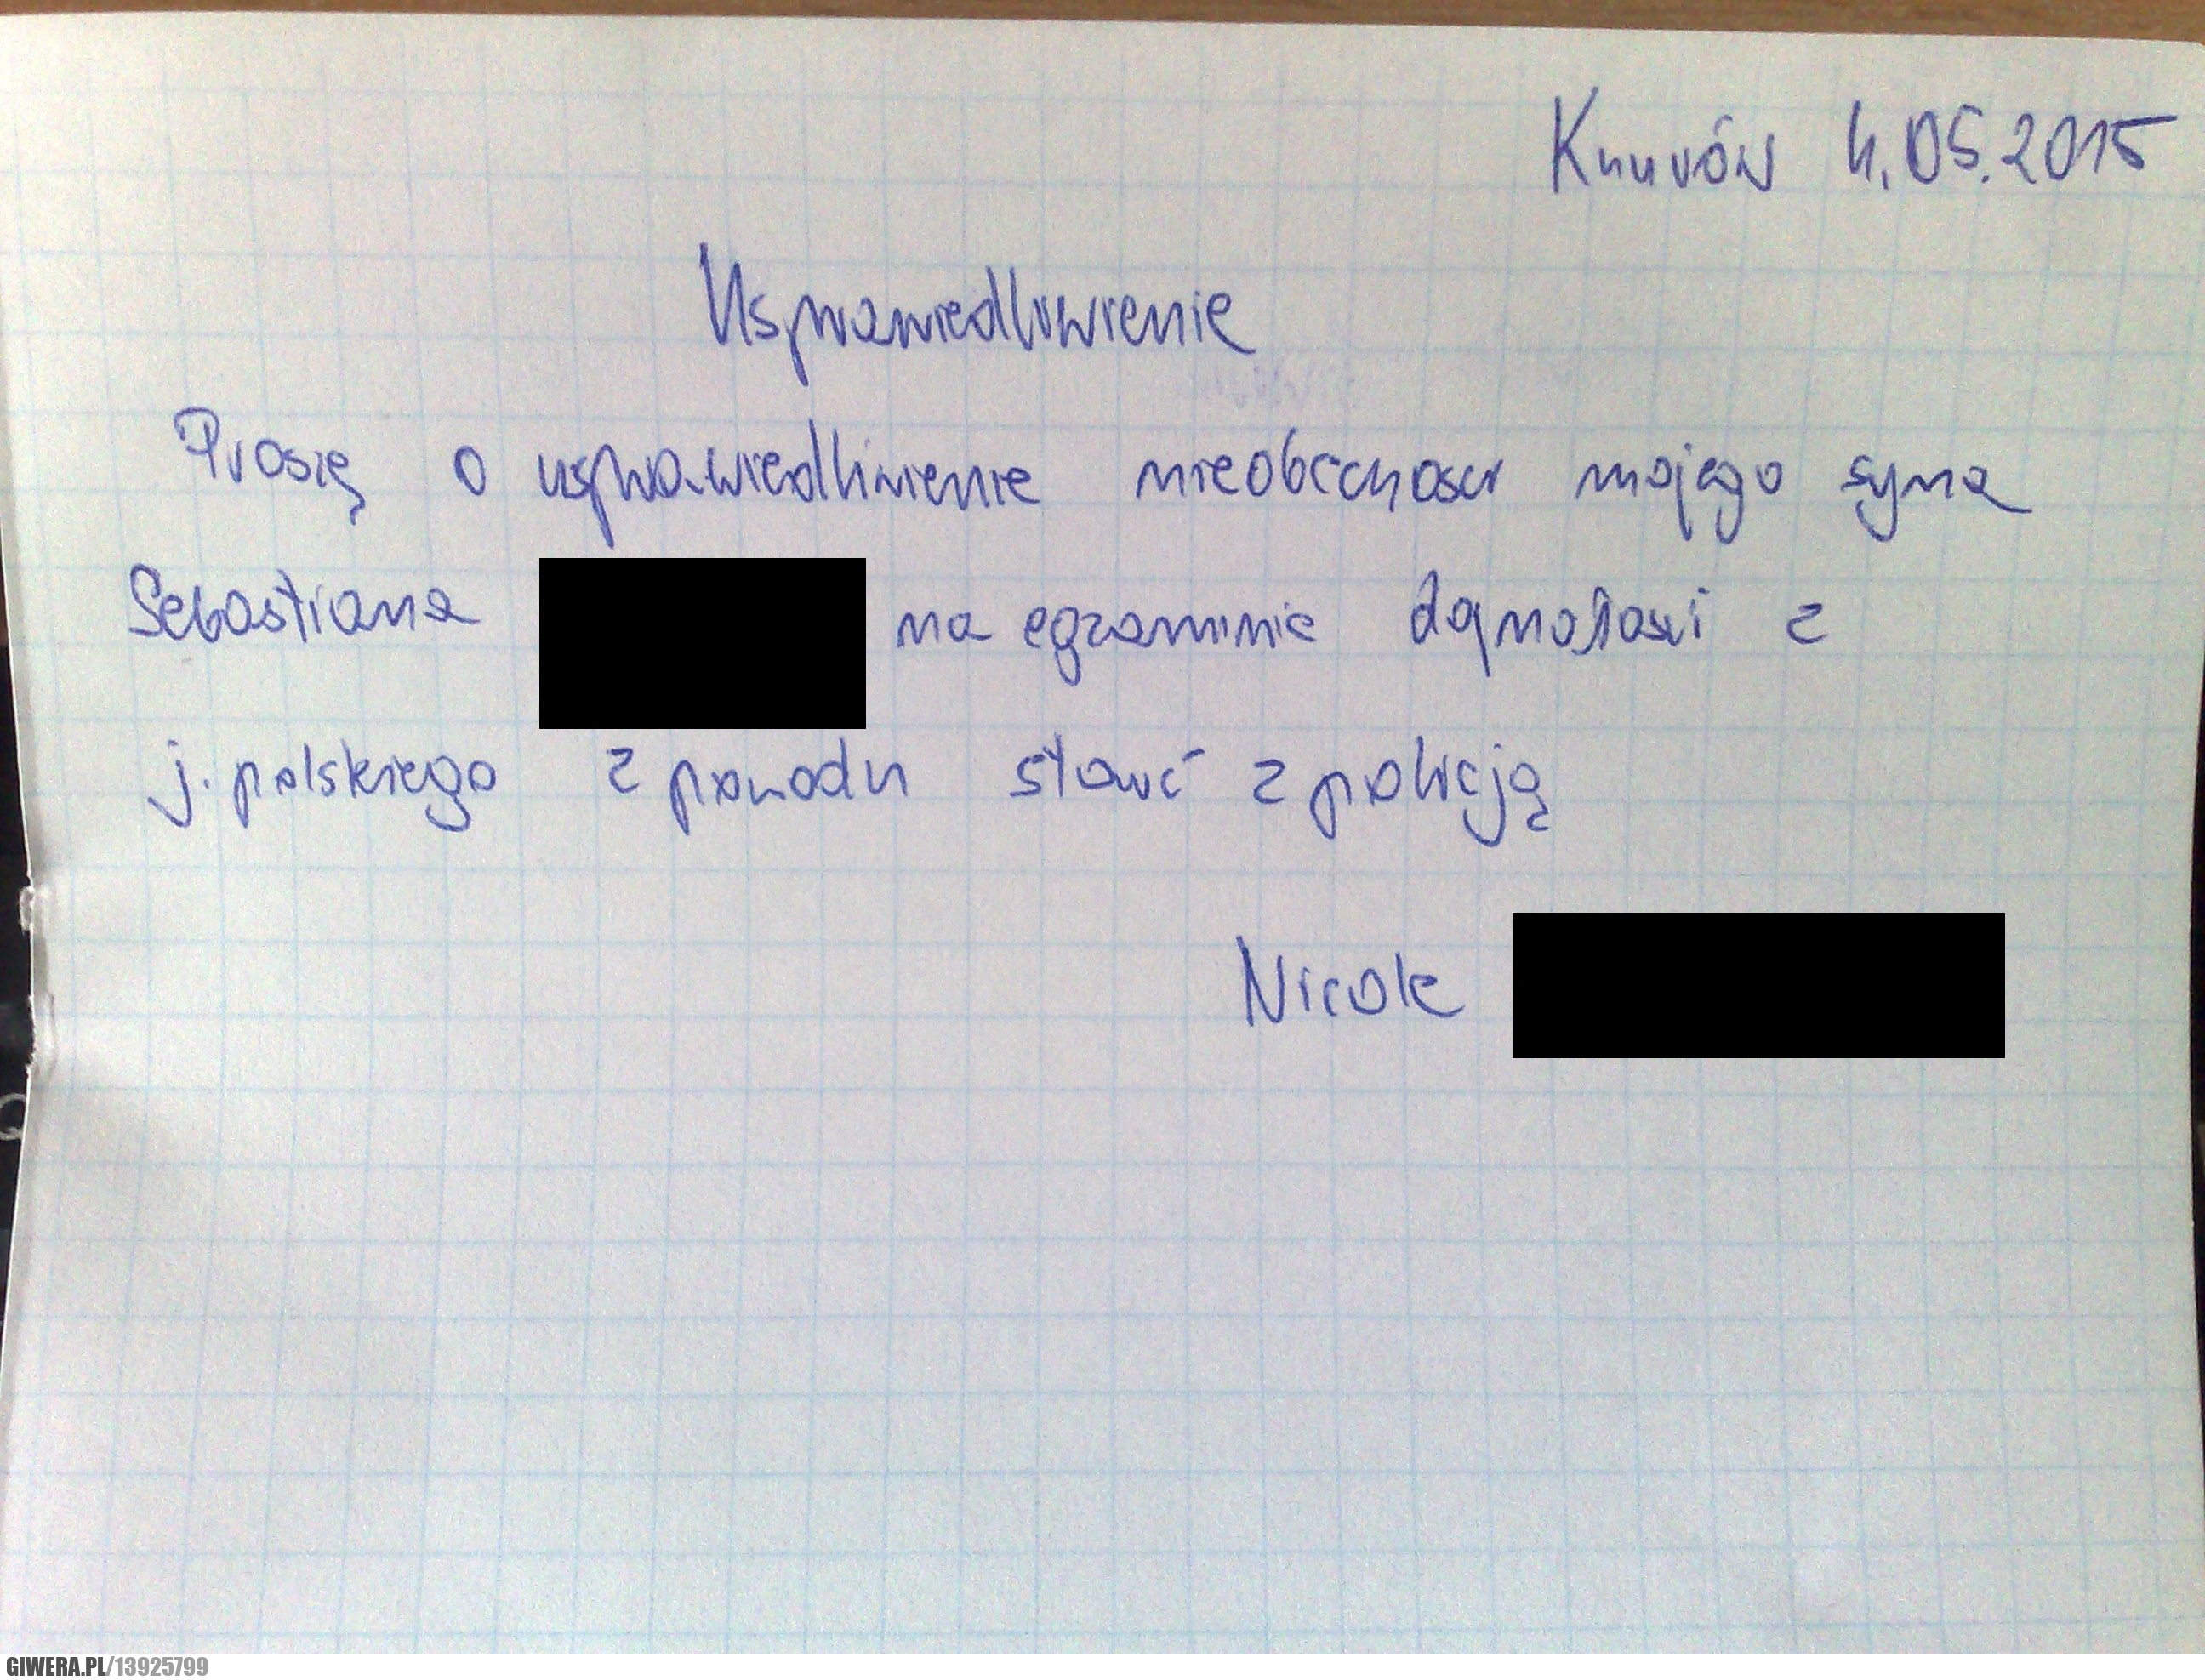 Knurów 4.05.2015
Usprawiedliwienie
Proszę o usprawiedliwienie nieobecności mojego syna
Sebastiana na egzaminie dojrzałości z
j. polskiego z powodu starć z policją
Nicole
GIWERA.PL/13925799